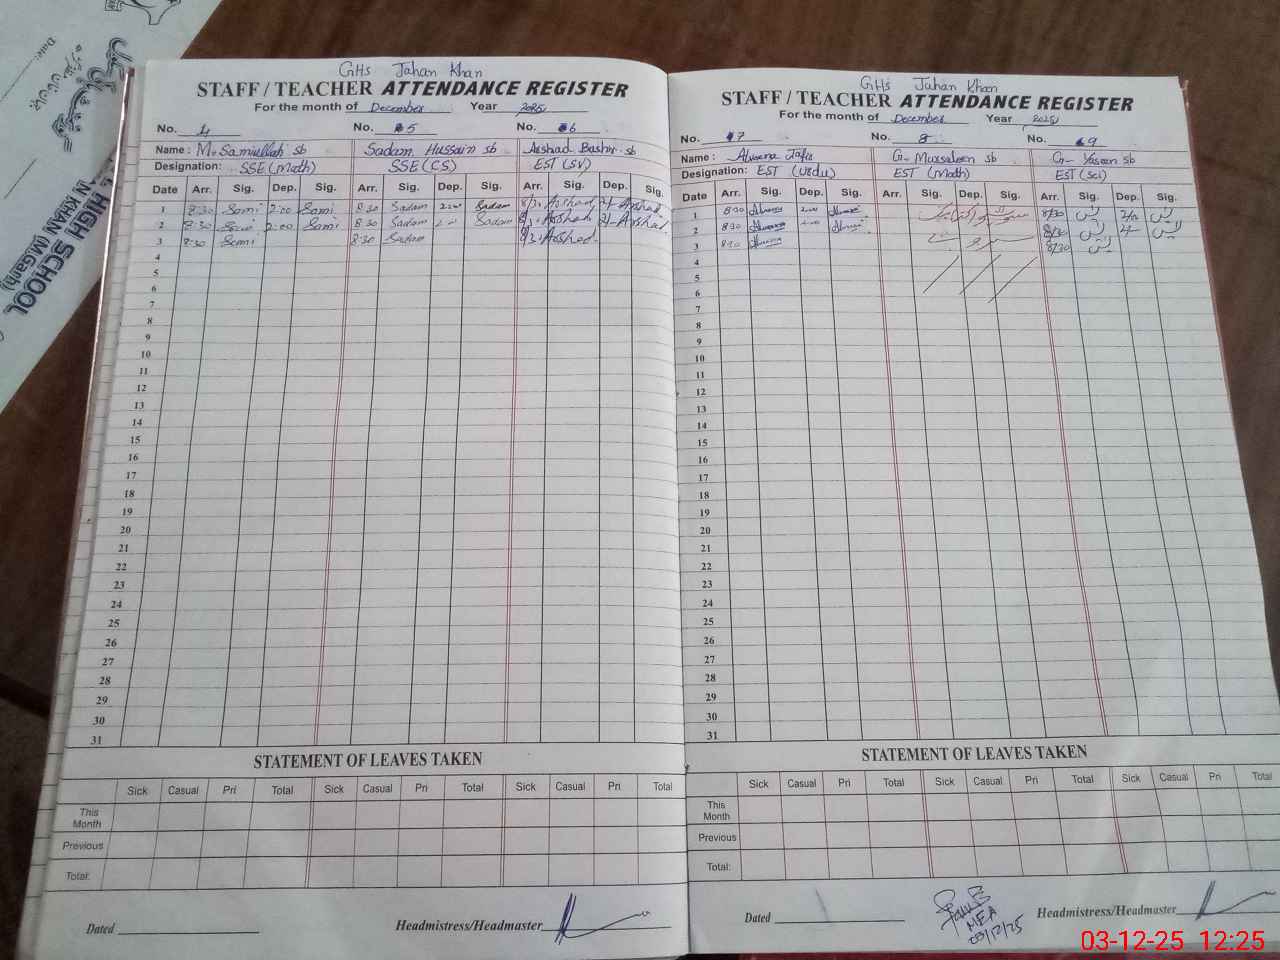 Date:
HIGH SCHOOL
N KHAN (M.Garh)
GHS Jahan Khan
STAFF / TEACHER ATTENDANCE REGISTER
For the month of December Year 2025
No. 4 No. 5 No. 6
Name: M. Samiullah sb Sadam Hussain sb Arshad Bashir sb
Designation: SSE (Math) SSE (CS) EST (SV)
Date Arr. Sig. Dep. Sig. Arr. Sig. Dep. Sig. Arr. Sig. Dep. Sig.
1 8:30 Sami 2:00 Sami 8:30 Sadam 2:00 Sadam 8/30 Arshad 2/- Arshad
2 8:30 Sami 2:00 Sami 8:30 Sadam 2:00 Sadam 8/30 Arshad 2/- Arshad
3 8:30 Sami 8:30 Sadam 8/30 Arshad
4
5
6
7
8
9
10
11
12
13
14
15
16
17
18
19
20
21
22
23
24
25
26
27
28
29
30
31
STATEMENT OF LEAVES TAKEN
Sick Casual Pri Total Sick Casual Pri Total Sick Casual Pri Total
This Month
Previous
Total:
Dated Headmistress/Headmaster
GHS Jahan Khan
STAFF / TEACHER ATTENDANCE REGISTER
For the month of December Year 2025
No. 7 No. 8 No. 9
Name: G- Mursaleen sb G- Yaseen sb
Designation: EST (Urdu) EST (Math) EST (Sci)
Date Arr. Sig. Dep. Sig. Arr. Sig. Dep. Sig. Arr. Sig. Dep. Sig.
1 8:30 2:00 8/30 2/-
2 8:30 2:00 8/30 2/-
3 8:30 8/30
4
5
6
7
8
9
10
11
12
13
14
15
16
17
18
19
20
21
22
23
24
25
26
27
28
29
30
31
STATEMENT OF LEAVES TAKEN
Sick Casual Pri Total Sick Casual Pri Total Sick Casual Pri Total
This Month
Previous
Total:
Dated Headmistress/Headmaster
MEA
03/12/25
03-12-25 12:25